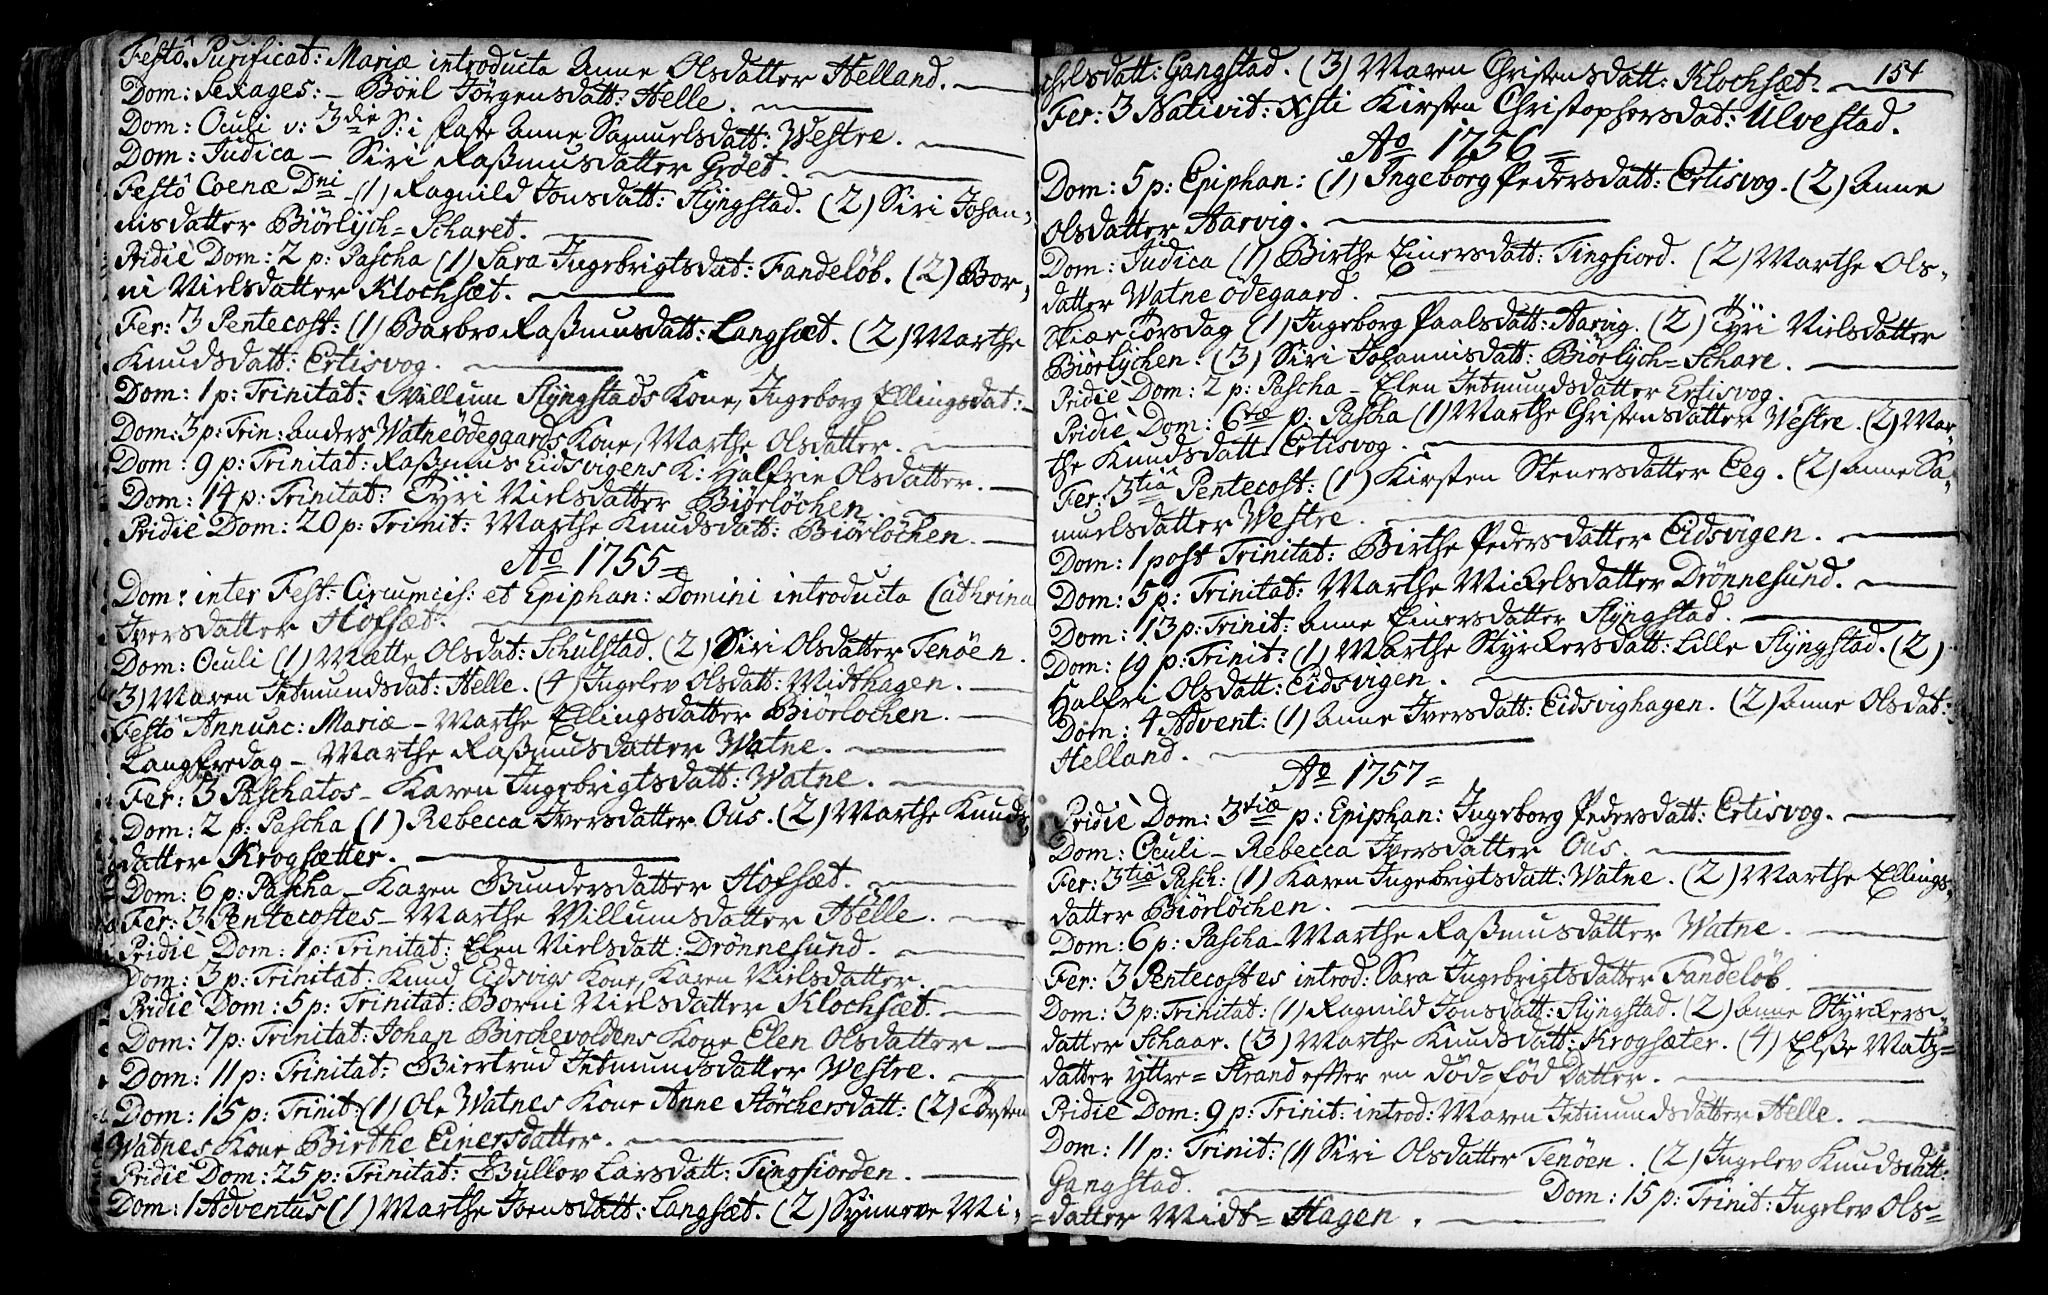 Festô Purificat: Mariæ introducta Anne Olsdatter Helland.
Dom: Sexages: – Böel Jörgensdatt: Helle.
Dom: Oculi v: 3die S: i Faste Anne Samuelsdatt: Westre.
Dom: Judica – Siri Raßmusdatter Gröet.
Festô Coenæ Dni – (1) Ragnild Jonsdatt: Slÿngstad. (2) Siri Johan-
nisdatter Biörlÿch-Scharet.
Pridiè Dom: 2 p: Pascha (1) Sara Ingebrigtsdat: Fandelöb. (2) Bor-
ni Nielsdatter Klochsæt.
Fer: 3 Pentecost: (1) Barbro Raßmusdatt: Langsæt. (2) Marthe
Knudsdatt: Ertisvog.
Dom: 1 p: Trinitat: Willum Slÿngstads Kone, Ingeborg Ellingsdat:
Dom: 3 p: Trin: Anders Watneödeggards Kone, Marthe Olsdatter.
Dom: 9 p: Trinitat: Raßmus Eidsvigens K: Halfrie Olsdatter.
Dom: 14 p: Trinitat: Tÿri Nielsdatter Biörlöchen
Pridiè Dom: 20 p: Trinit: Marthe Knudsdatt: Biörlöchen.
Ao 1755=
Dom: inter Fest: Circumcis: et Epiphan: Domini introducta Cathrina
Iversdatter Hofsæt.
Dom: Oculi (1) Mætte Olsdat: Schulstad. (2) Siri Olsdatter Tenöen.
3) Maren Jetmundsdat: Helle. (4) Ingelev Olsdatt: Midthagen.
Festô Annunc: Mariæ – Marthe Ellingsdatter Biörlöchen.
Langfredag – Marthe Raßmusdatter Watne.
Fer: 3 Paschatos – Karen Ingebrigtsdatt: Watne.
Dom: 2 p: Pascha (1) Rebecca Iversdatter Ous. (2) Marthe Knuds-
datter Krogsætter.
Dom: 6 p: Pascha – Karen Gundersdatter Hofsæt.
Fer: 3 Pentecostes – Marthe Willumsdatter Helle.
Pridiè Dom: 1 p: Trinitat: Elen Nielsdatt: Drönnesund.
Dom: 3 p: Trinitat: Knud Eidsvigs Kone, Karen Nielsdatter.
Pridiè Dom: 5 p: Trinitat: Borni Nielsdatter Klochsæt.
Dom: 7 p: Trinitat: Johan Birchevoldens Kone Elen Olsdatter
Dom: 11 p: Trinitat: Biertrud Jetmundsdatter Westre.
Dom: 15 p: Trinit: (1) Ole Watnes Kone Anne Störchersdatt: (2) Torsten
Watnes Kone Birthe Einersdatter.
Pridiè Dom: 25 p: Trinitat: Gullov Larsdatt: Tingfiorden.
Dom: 1 Adventus (1) Marthe Joensdatt: Langsæt. (2) Sÿnneve Mi-
chelsdatt: Gangstad. (3) Maren Christensdatt: Klochsæt. 154
Fer: 3 Nativit: Xsti Kirsten Christophersdat: Ulvestad.
Ao 1756=
Dom: 5 p: Epiphan: (1) Ingeborg Pedersdatt: Ertisvog. (2) Anne
Olsdatter Aarvig.
Dom: Judica (1) Birthe Einersdatt: Tingfiord. (2) Marthe Ols-
datter Watne Ödegaard.
Skiær Torsdag (1) Ingeborg Paalsdatt: Aarvig. (2) Tÿri Nielsdatter
Biörlÿchen. (3) Siri Johannisdatt: Biörlÿch-Schare.
Pridiè Dom: 2 p: Pascha – Elen Jetmundsdatter Ertisvog.
Pridiè Dom: 6tæ p: Pascha (1) Marthe Christensdatter Westre. (2) Mar-
the Knudsdatt: Ertisvog.
Fer: 3tiâ Pentecost: (1) Kirsten Stenersdatter Eeg. (2) Anne Sa-
muelsdatter Westre.
Dom: 1 post Trinitat: Birthe Pedersdatter Eidsvigen.
Dom: 5 p: Trinitat: Marthe Mickelsdatter Drönnesund.
Dom: 13 p: Trinit: Anne Einersdatter Slÿngstad.
Dom: 19 p: Trinit: (1) Marthe Stÿrckersdatt: Lille Slÿngstad. (2)
Halfri Olsdatt: Eidsvigen.
Dom: 4 Advent: (1) Anne Iversdatt: Eidsvighagen. (2) Anne Olsdat:
Helland.
Ao 1757=
Pridiè Dom: 3tiæ p: Epiphan: Ingeborg Pedersdatt: Ertisvog.
Dom: Oculi – Rebecca Iversdatter Ous.
Fer: 3tiâ Pasch: (1) Karen Ingebrigtsdatt: Watne. (2) Marthe Ellings-
datter Biörlöchen.
Dom: 6 p: Pascha – Marthe Raßmusdatter Watne.
Fer: 3 Pentecostes introd: Sara Ingebrigtsdatter Fandelöb.
Dom: 3 p: Trinitat: (1) Ragnild Jonsdatt: Slÿngstad. (2) Anne Stÿrckers-
datter Schaar. (3) Marthe Knudsdatt: Krogsæter. (4) Elße Matz-
datter Ÿttre-Strand efter en död-föd Datter.
Pridiè Dom: 9 p: Trinit: introd: Maren Jetmundsdatter Helle.
Dom: 11 p: Trinit: (1) Siri Olsdatter Tenöen. (2) Ingelev Knudsdatt:
Gangstad. Dom: 15 p: Trinit: Ingelev Ols-
datter Midt-Hagen.